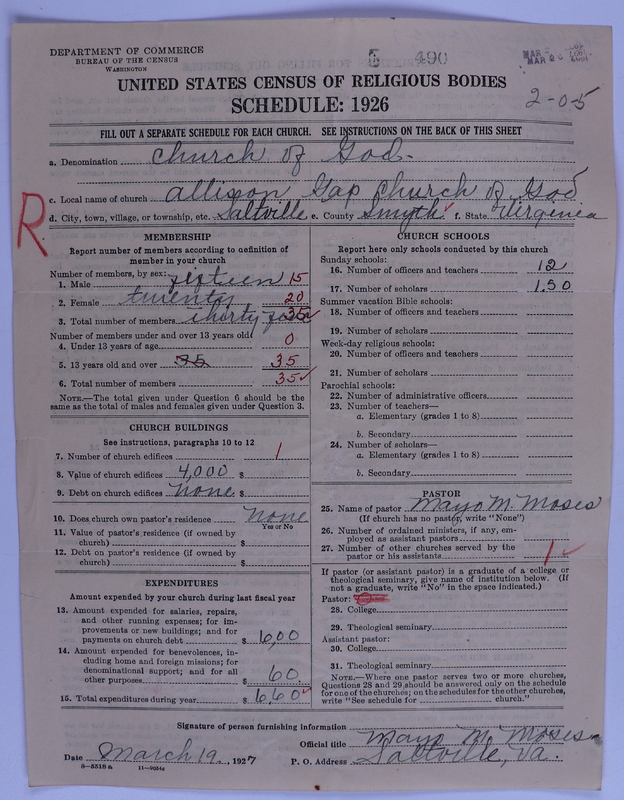 DEPARTMENT OF COMMERCE
BUREAU OF THE CENSUS
WASHINGTON
5 490
MAR
MAR 2
UNITED STATES CENSUS OF RELIGIOUS BODIES
SCHEDULE: 1926
2-0-5
FILL OUT A SEPARATE SCHEDULE FOR EACH CHURCH. SEE INSTRUCTIONS ON THE BACK OF THIS SHEET
a. Denomination Church of God.
c. Local name of church Allison Gap Church of God
R
d. City, town, village, or township, etc. Saltville e. County Smyth f. State Virginia
MEMBERSHIP
Report number of members according to definition of
member in your church
Number of members, by sex:
1. Male fifteen 15
2. Female twenty 20
3. Total number of members thirty 35
Number of members under and over 13 years old:
4. Under 13 years of age 0
5. 13 years old and over 35 35
6. Total number of members 35
NOTE.—The total given under Question 6 should be
same as the total of males and females given under Question 3.
CHURCH BUILDINGS
See instructions, paragraphs 10 to 12
7. Number of church edifices 1
8. Value of church edifices 4,000 $
9. Debt on church edifices none $
10. Does church own pastor's residence none
Yes or No
11. Value of pastor's residence (if owned by
church) $
12. Debt on pastor's residence (if owned by
church) $
EXPENDITURES
Amount expended by your church during last fiscal year
13. Amount expended for salaries, repairs,
and other running expenses; for im-
provements or new buildings; and for
payments on church debt $ 6,00
14. Amount expended for benevolences, in-
cluding home and foreign missions; for
denominational support; and for all
other purposes $ 60.
15. Total expenditures during year $ 6,60
CHURCH SCHOOLS
Report here only schools conducted by this church
Sunday schools:
16. Number of officers and teachers 12
17. Number of scholars 1.50
Summer vacation Bible schools:
18. Number of officers and teachers
19. Number of scholars
Week-day religious schools:
20. Number of officers and teachers
21. Number of scholars
Parochial schools:
22. Number of administrative officers
23. Number of teachers—
a. Elementary (grades 1 to 8)
b. Secondary
24. Number of scholars—
a. Elementary (grades 1 to 8)
b. Secondary
PASTOR
25. Name of pastor Mayo M. Moses
(If church has no pastor, write "None")
26. Number of ordained ministers, if any, em-
ployed as assistant pastors
27. Number of other churches served by the
pastor or his assistants 1
If pastor (or assistant pastor) is a graduate of a college or
theological seminary, give name of institution below. (If
not a graduate, write "No" in the space indicated.)
Pastor:
28. College
29. Theological seminary
Assistant pastor:
30. College
31. Theological seminary
NOTE.—Where one pastor serves two or more churches,
Questions 28 and 29 should be answered only on the schedule
for one of the churches; on the schedules for the other churches,
write "See schedule for church."
Signature of person furnishing information
Official title Mayo M. Moses
Date March 19, 1927 P. O. Address Saltville, Va.
8-5518a 11-9034a